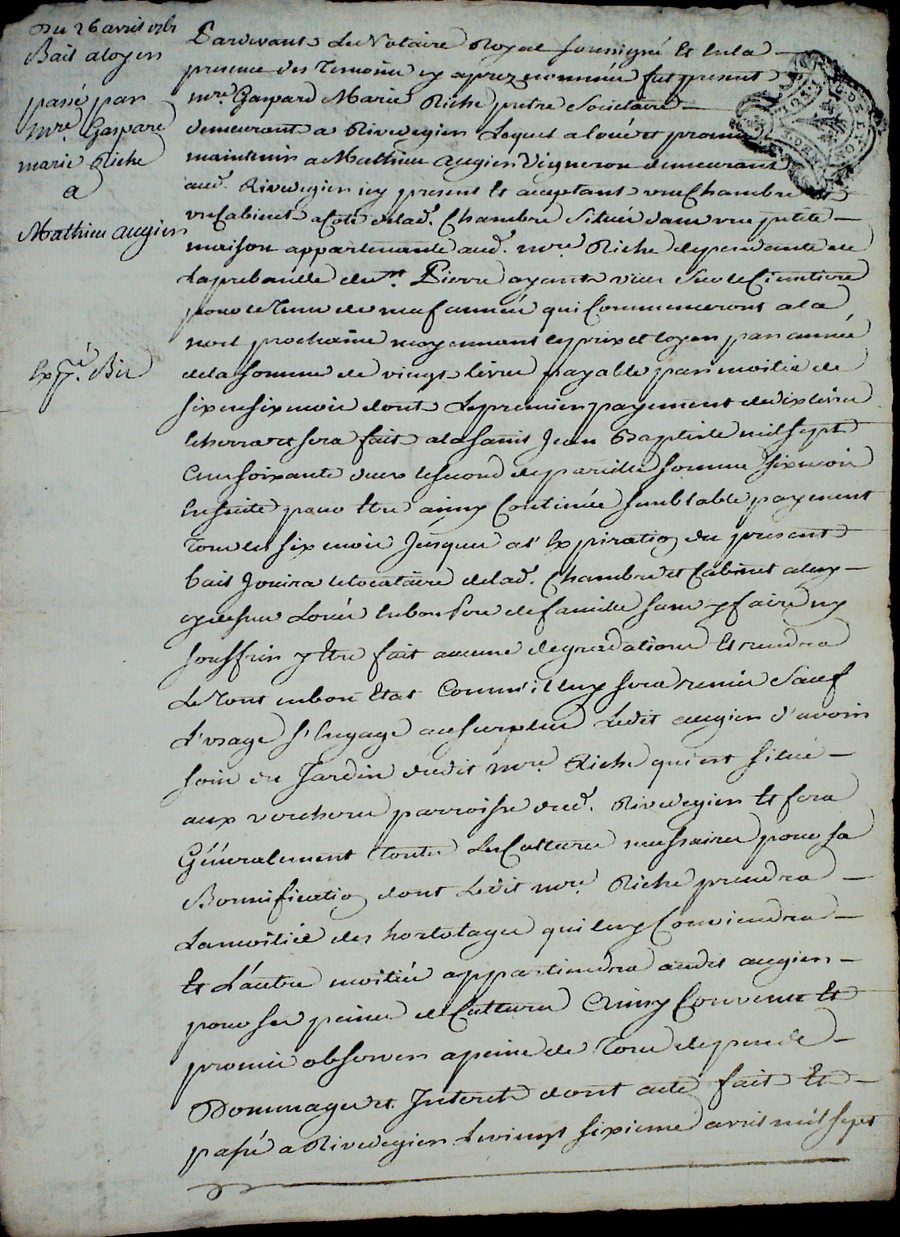 Du 26 avril 1761
Bail a loyer
passé par
mre Gaspard
marie Riche
a
Mathieu augier
Expé. Bir
Pardevant Le Notaire Royal soussigné Et en la
presence des Temoins cy aprez nommés fut present
mre. Gaspard Marie Riche pretre Societaire
demeurant a Rivedegier Lequel a loué et promis
maintenir a Mathieu augier Vigneron demeurant
aud. Rivedegier icy present Et aceptant une Chambre et
un Cabinet a Coté de lad. Chambre Située dans une petite
maison appartenante aud. mre. Riche dependante de
La prebande de st. Pierre ayant vüe Sur le Cimetiere
pour le Tems de neuf années qui Commenceront a la
noel prochaine moyennant le prix et loyer par année
de la somme de vingt livres payable par moitié de
six en six mois dont Le premier payement de dix livres
echerra et sera fait a la saint Jean Baptiste mil sept
Cent soixante deux le second de pareille somme six mois
Ensuite pour Etre ainsy Continué semblable payement
Tous les six mois Jusques a l'Expiration du present
bail Jouira le locataire de lad. Chambre et Cabinet a luy
cy dessus Loués en bon pere de famille sans y faire ny
souffrir y Etre fait aucune degradations Et rendra
Le Tout en bon Etat Comm'il luy sera remis Sauf
L'usage s'Engage au surplus Ledit augier d'avoir
soin du Jardin dudit mre. Riche qui est situé
aux verchere parroisse dud. Rivedegier Et fera
Généralement toutes Les Cultures necessaires pour sa
Bonnification dont Ledit mre. Riche prendra
La moitié des hortolages qui luy Conviendra
Et L'autre moitié appartiendra audit augier
pour ses peines de Cultures Ainsy Convenu Et
promis observer a peine de Tous depends
Dommages et Interets dont acte fait Et
passé a Rivedegier Le vingt sixieme avril mil sept